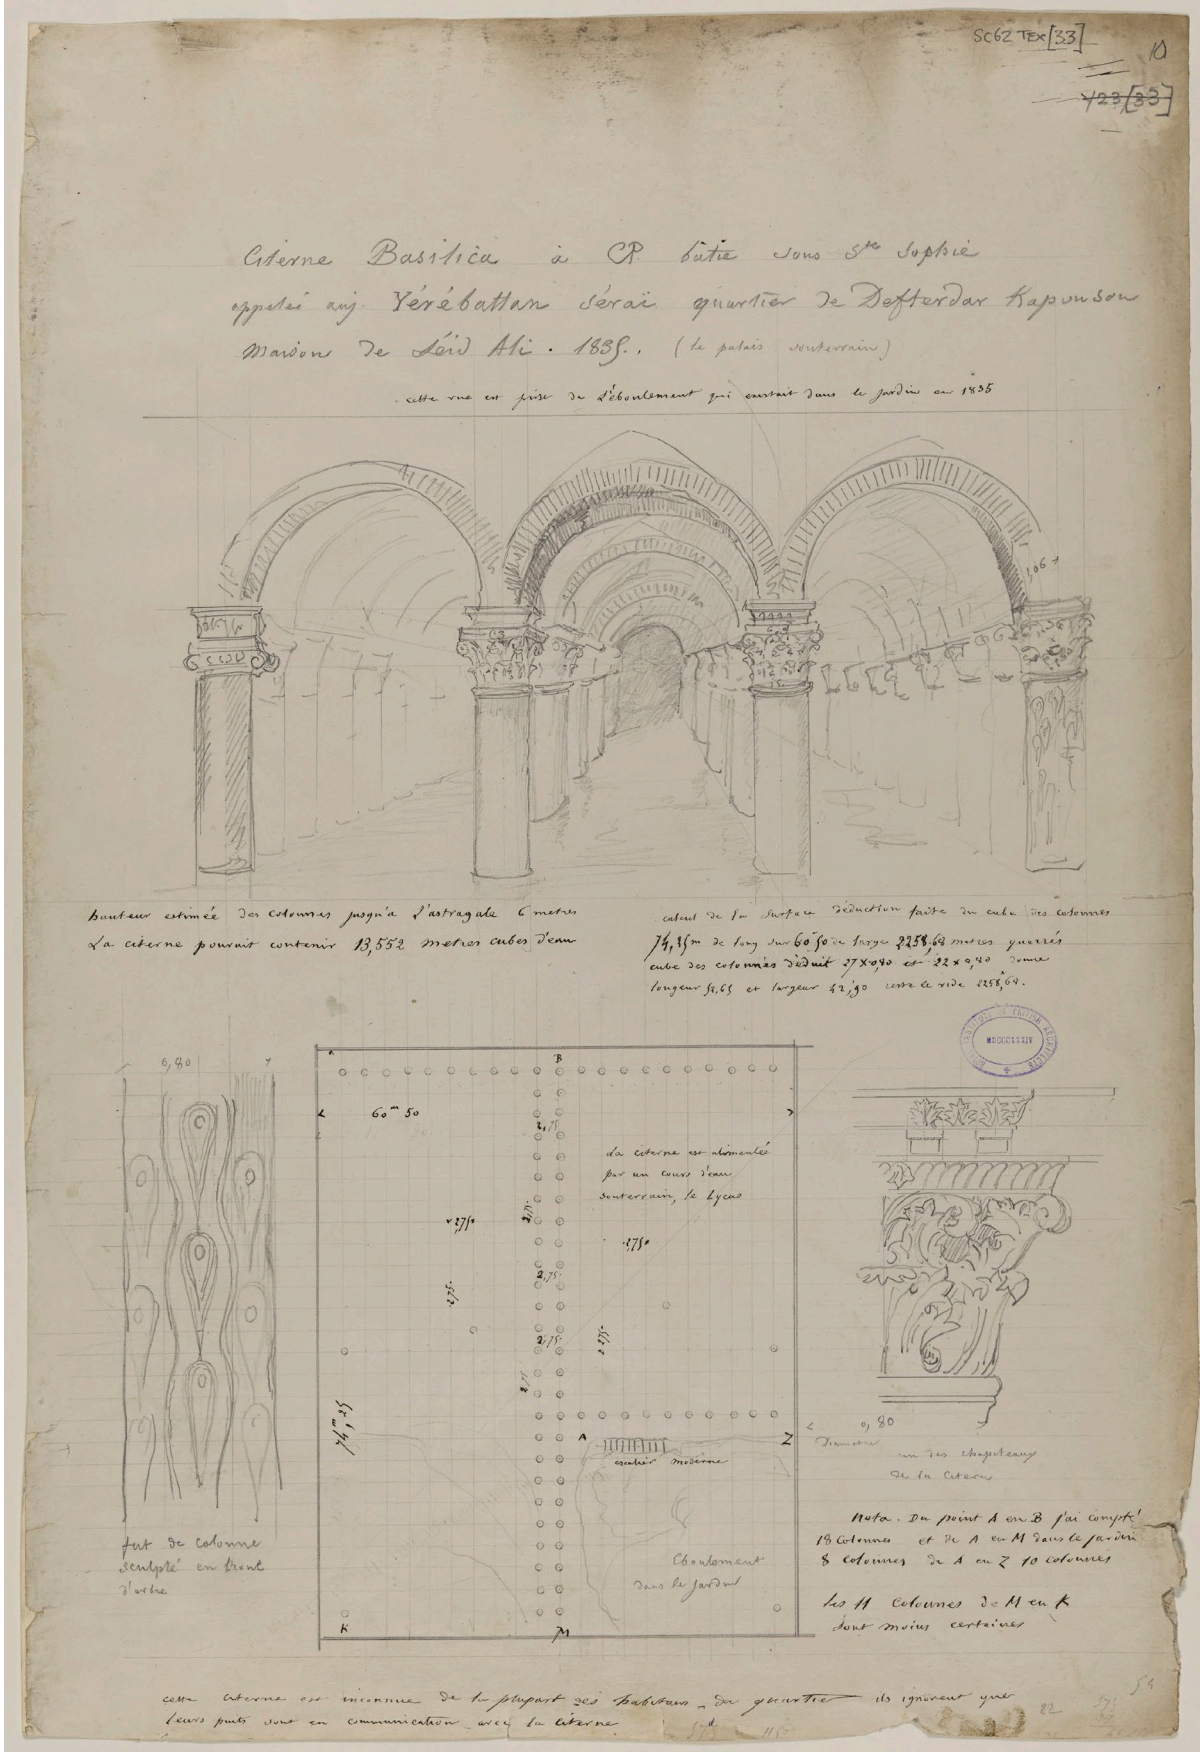 SC62 TEX[33]
10
423/[33]
Citerne Basilica à CP bâtie sous Ste Sophie
appelée auj. Yérébattan Séraï quartier de Defterdar Kapousou
Maison de Séid Ali . 1835. . (le palais souterrain)
cette vue est prise de l'éboulement qui existait dans le jardin en 1835
hauteur estimée des colonnes jusqu'a l'astragale 6 metres
La citerne pourait contenir 13,552 metres cubes d'eau
calcul de la surface déduction faite du cube des colonnes
74,35m de long sur 60m50 de large 2258,68 metres quarrés
cube des colonnes déduit 27x0,80 et 22x0,80 donne
longeur 52,65 et largeur 42,90 reste le vide 2258,68.
ROYAL INSTITUTE OF BRITISH ARCHITECTS
MDCCCXXXIV
0,80
B
60m 50
2,75
La citerne est alimentée
par un cours d'eau
souterrain, le Lycus
2,75
2,750
2,750
2,75
2,75
2,75
2,75
2,75
74m,35
A
Z
escalier moderne
Eboulement
dans le jardin
K
M
fut de colonne
sculpté en tronc
d'arbre
0,80
Diametre
un des chapiteaux
de la citerne
Nota. Du point A en B j'ai compté
18 colonnes et de A en M dans le jardin
8 colonnes de A en Z 10 colonnes
les 11 colonnes de M en K
sont moins certaines
cette citerne est inconnue de la plupart des habitans du quartier ils ignorent que
leurs puits sont en communication avec la citerne
22